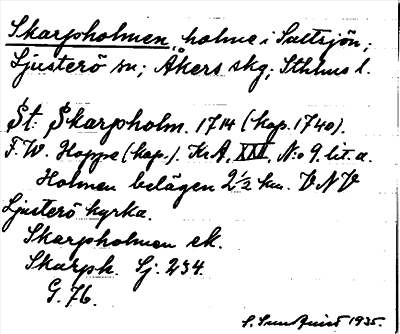 Skarpholmen, holme i Saltsjön;
Ljusterö sn; Åkers skg; Sthlms l.
St. Skarpholm. 1714 (kop. 1740).
F. W. Hoppe (kop.). KrA, XXI, N:o 9. lit. a.
Holmen belägen 2½ km. VNV
Ljusterö kyrka.
Skarpholmen ek.
Skarph. Sj. 234.
G. 76.
S. 1935.